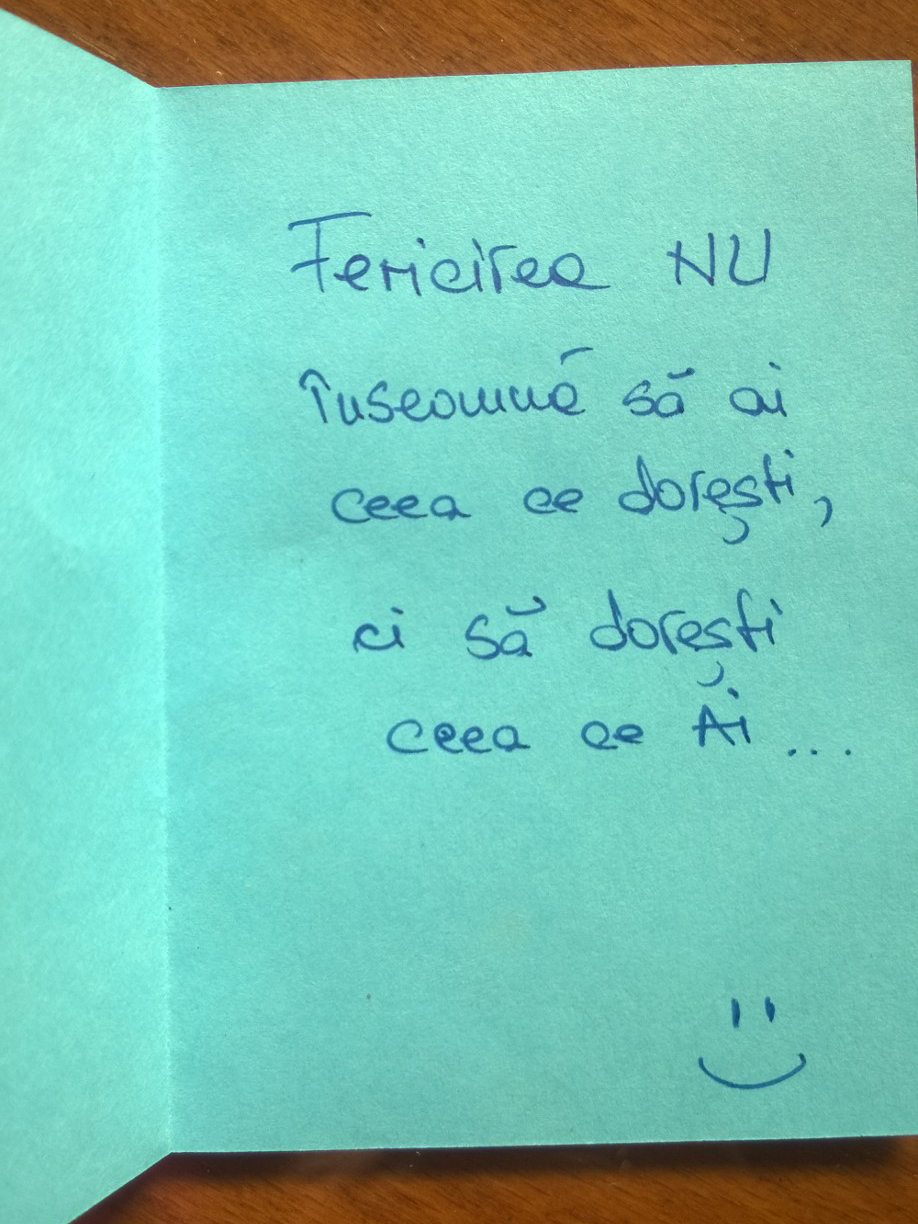 Fericirea NU
înseamnă să ai
ceea ce dorești,
ci să dorești
ceea ce Ai...